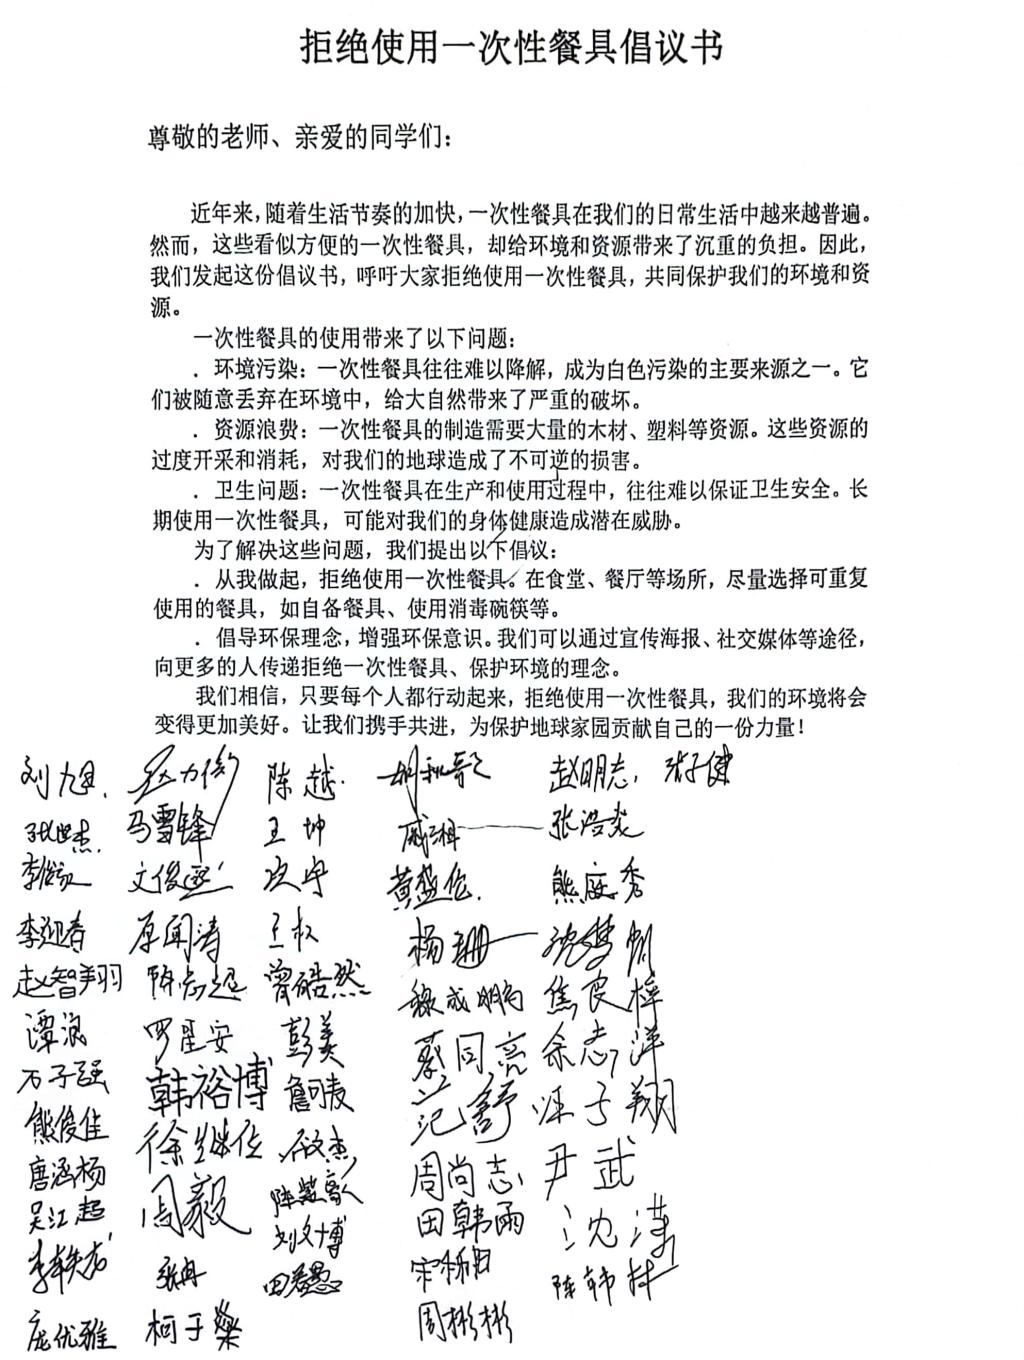 拒绝使用一次性餐具倡议书
尊敬的老师、亲爱的同学们：
近年来，随着生活节奏的加快，一次性餐具在我们的日常生活中越来越普遍。
然而，这些看似方便的一次性餐具，却给环境和资源带来了沉重的负担。因此，
我们发起这份倡议书，呼吁大家拒绝使用一次性餐具，共同保护我们的环境和资
源。
一次性餐具的使用带来了以下问题：
．环境污染：一次性餐具往往难以降解，成为白色污染的主要来源之一。它
们被随意丢弃在环境中，给大自然带来了严重的破坏。
．资源浪费：一次性餐具的制造需要大量的木材、塑料等资源。这些资源的
过度开采和消耗，对我们的地球造成了不可逆的损害。
．卫生问题：一次性餐具在生产和使用过程中，往往难以保证卫生安全。长
期使用一次性餐具，可能对我们的身体健康造成潜在威胁。
为了解决这些问题，我们提出以下倡议：
．从我做起，拒绝使用一次性餐具。在食堂、餐厅等场所，尽量选择可重复
使用的餐具，如自备餐具、使用消毒碗筷等。
．倡导环保理念，增强环保意识。我们可以通过宣传海报、社交媒体等途径，
向更多的人传递拒绝一次性餐具、保护环境的理念。
我们相信，只要每个人都行动起来，拒绝使用一次性餐具，我们的环境将会
变得更加美好。让我们携手共进，为保护地球家园贡献自己的一份力量！
刘旭. 赵力衡 陈越. 赵明志, 张子健
马雪锋 王坤 戚湘 张浩炎
黄盛伦. 熊庭秀
李迎春 原闻涛 王权 杨珊 沈梦帆
赵智翔 陈志超 曾皓然 魏成鹏 焦良梓
谭浪 罗星安 彭美 蔡同亮 余志洋
万子强 韩裕博 詹可友 范舒 汪子翔
熊俊佳 徐继位 石文杰 周尚志 尹武
唐涵杨 周毅 陈楚歆 田韩雨 沈潇
吴江超 刘文博 陈韩林
张冉 田君愚
庞优雅 柯于燊 周彬彬